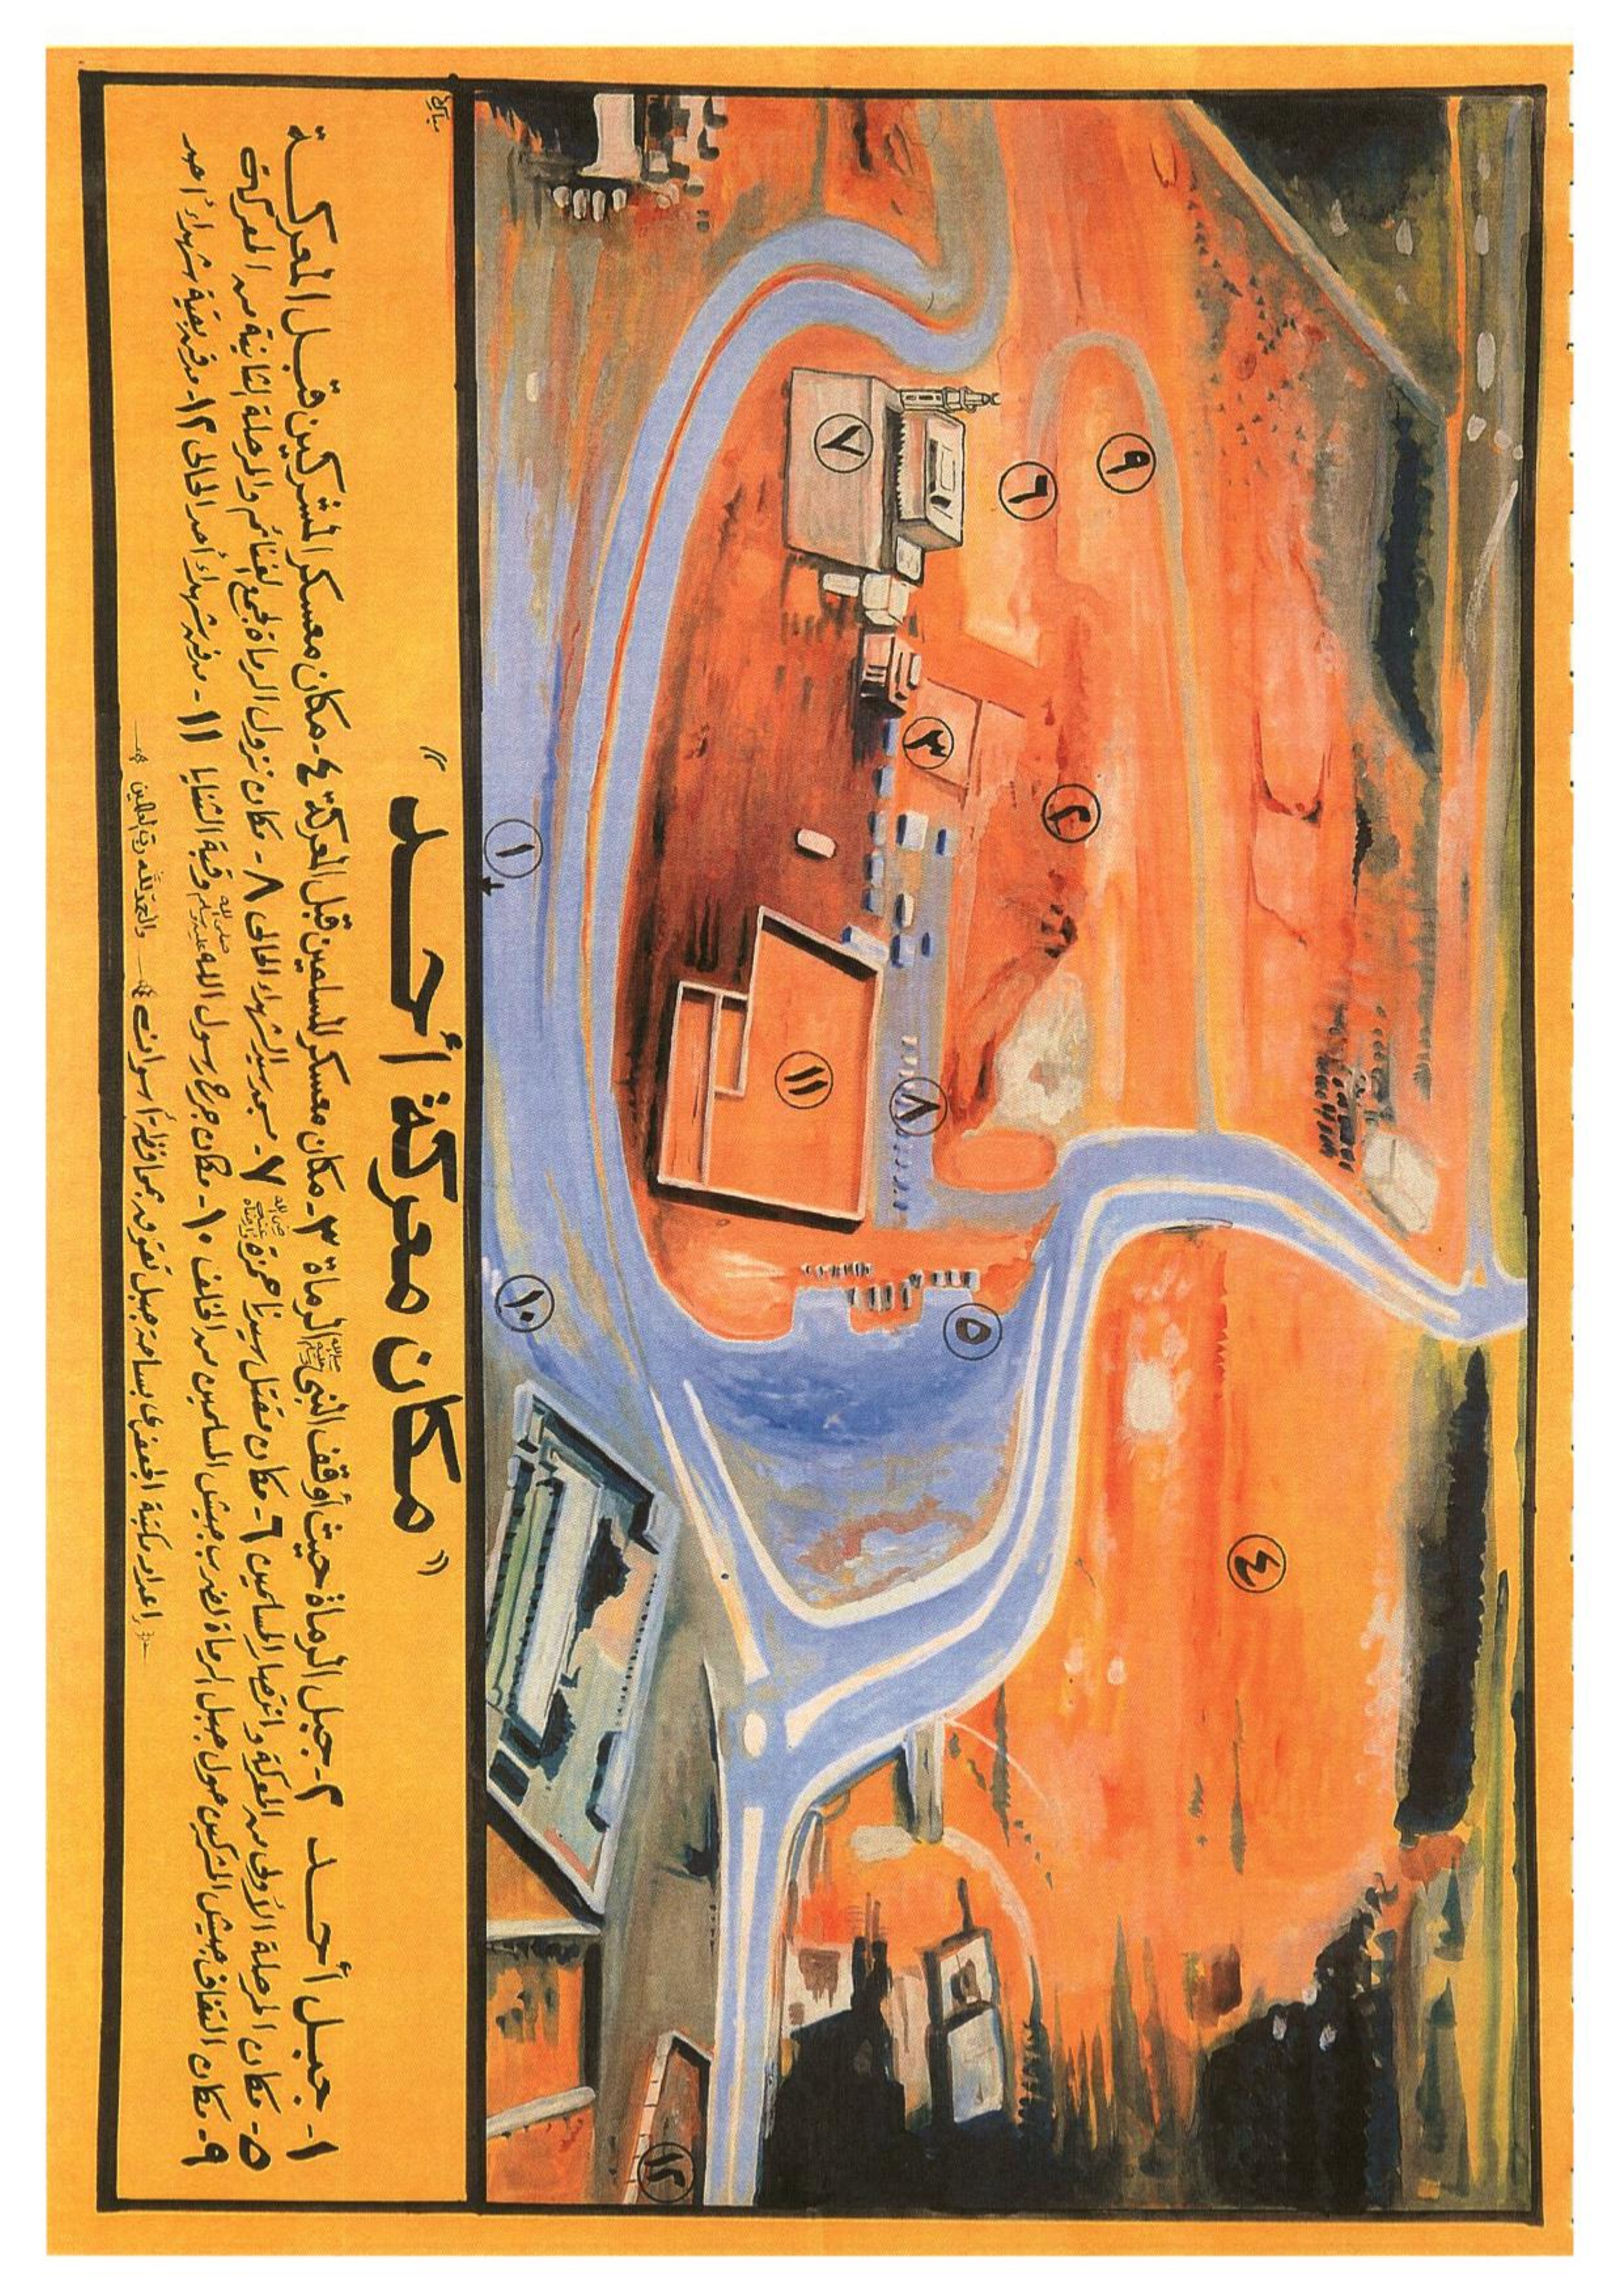 " مكان معركة أحد "
١- جبل أحد ٢- جبل الرماة حيث أوقف النبي ﷺ الرماة ٣- مكان معسكر المسلمين قبل المعركة ٤- مكان معسكر المشركين قبل المعركة
٥- مكان المرحلة الأولى من المعركة وانتصار المسلمين ٦- مكان مقتل سيدنا حمزة رضى الله عنه ٧- مسجد سيد الشهداء الحالى ٨- مكان نزول الرماة لجمع الغنائم والمرحلة الثانية من المعركة
٩- مكان التفاف جيش المشركين حول جبل الرماة لضرب جيش المسلمين من الخلف ١٠- مكان جرح رسول الله صلى الله عليه وسلم وقبة الثنايا ١١- مدفن شهداء أحد الحالى ١٢- مدفن بقية شهداء أحد
إعداد مكتبة الجعفرى بساحة جبل تقوق بمحافظة أسوان والحمد لله رب العالمين
١
٢
٣
٤
٥
٦
٧
٨
٩
١٠
١١
١٢